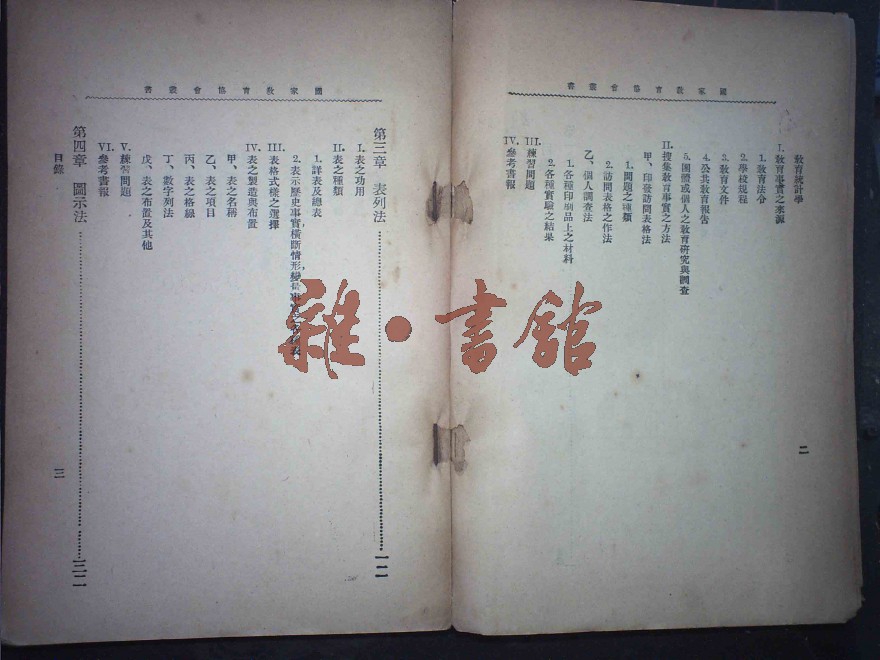 國家教育協會叢書
教育統計學
二
I. 教育事實之來源
1. 教育法令
2. 學校規程
3. 教育文件
4. 公共教育報告
5. 團體或個人之教育研究與調查
II. 搜集教育事實之方法
甲、印發訪問表格法
1. 問題之種類
2. 訪問表格之作法
乙、個人調查法
1. 各種印刷品上之材料
2. 各種實驗之結果
III. 練習問題
IV. 參考書報
國家教育協會叢書
第三章 表列法
I. 表之功用
II. 表之種類
1. 詳表及總表
2. 表示歷史事實,橫斷情形,變量事實
III. 表格式樣之選擇
IV. 表之製造與布置
甲、表之名稱
乙、表之項目
丙、表之格線
丁、數字列法
戊、表之布置及其他
V. 練習問題
VI. 參考書報
第四章 圖示法
目錄
三
雜·書館